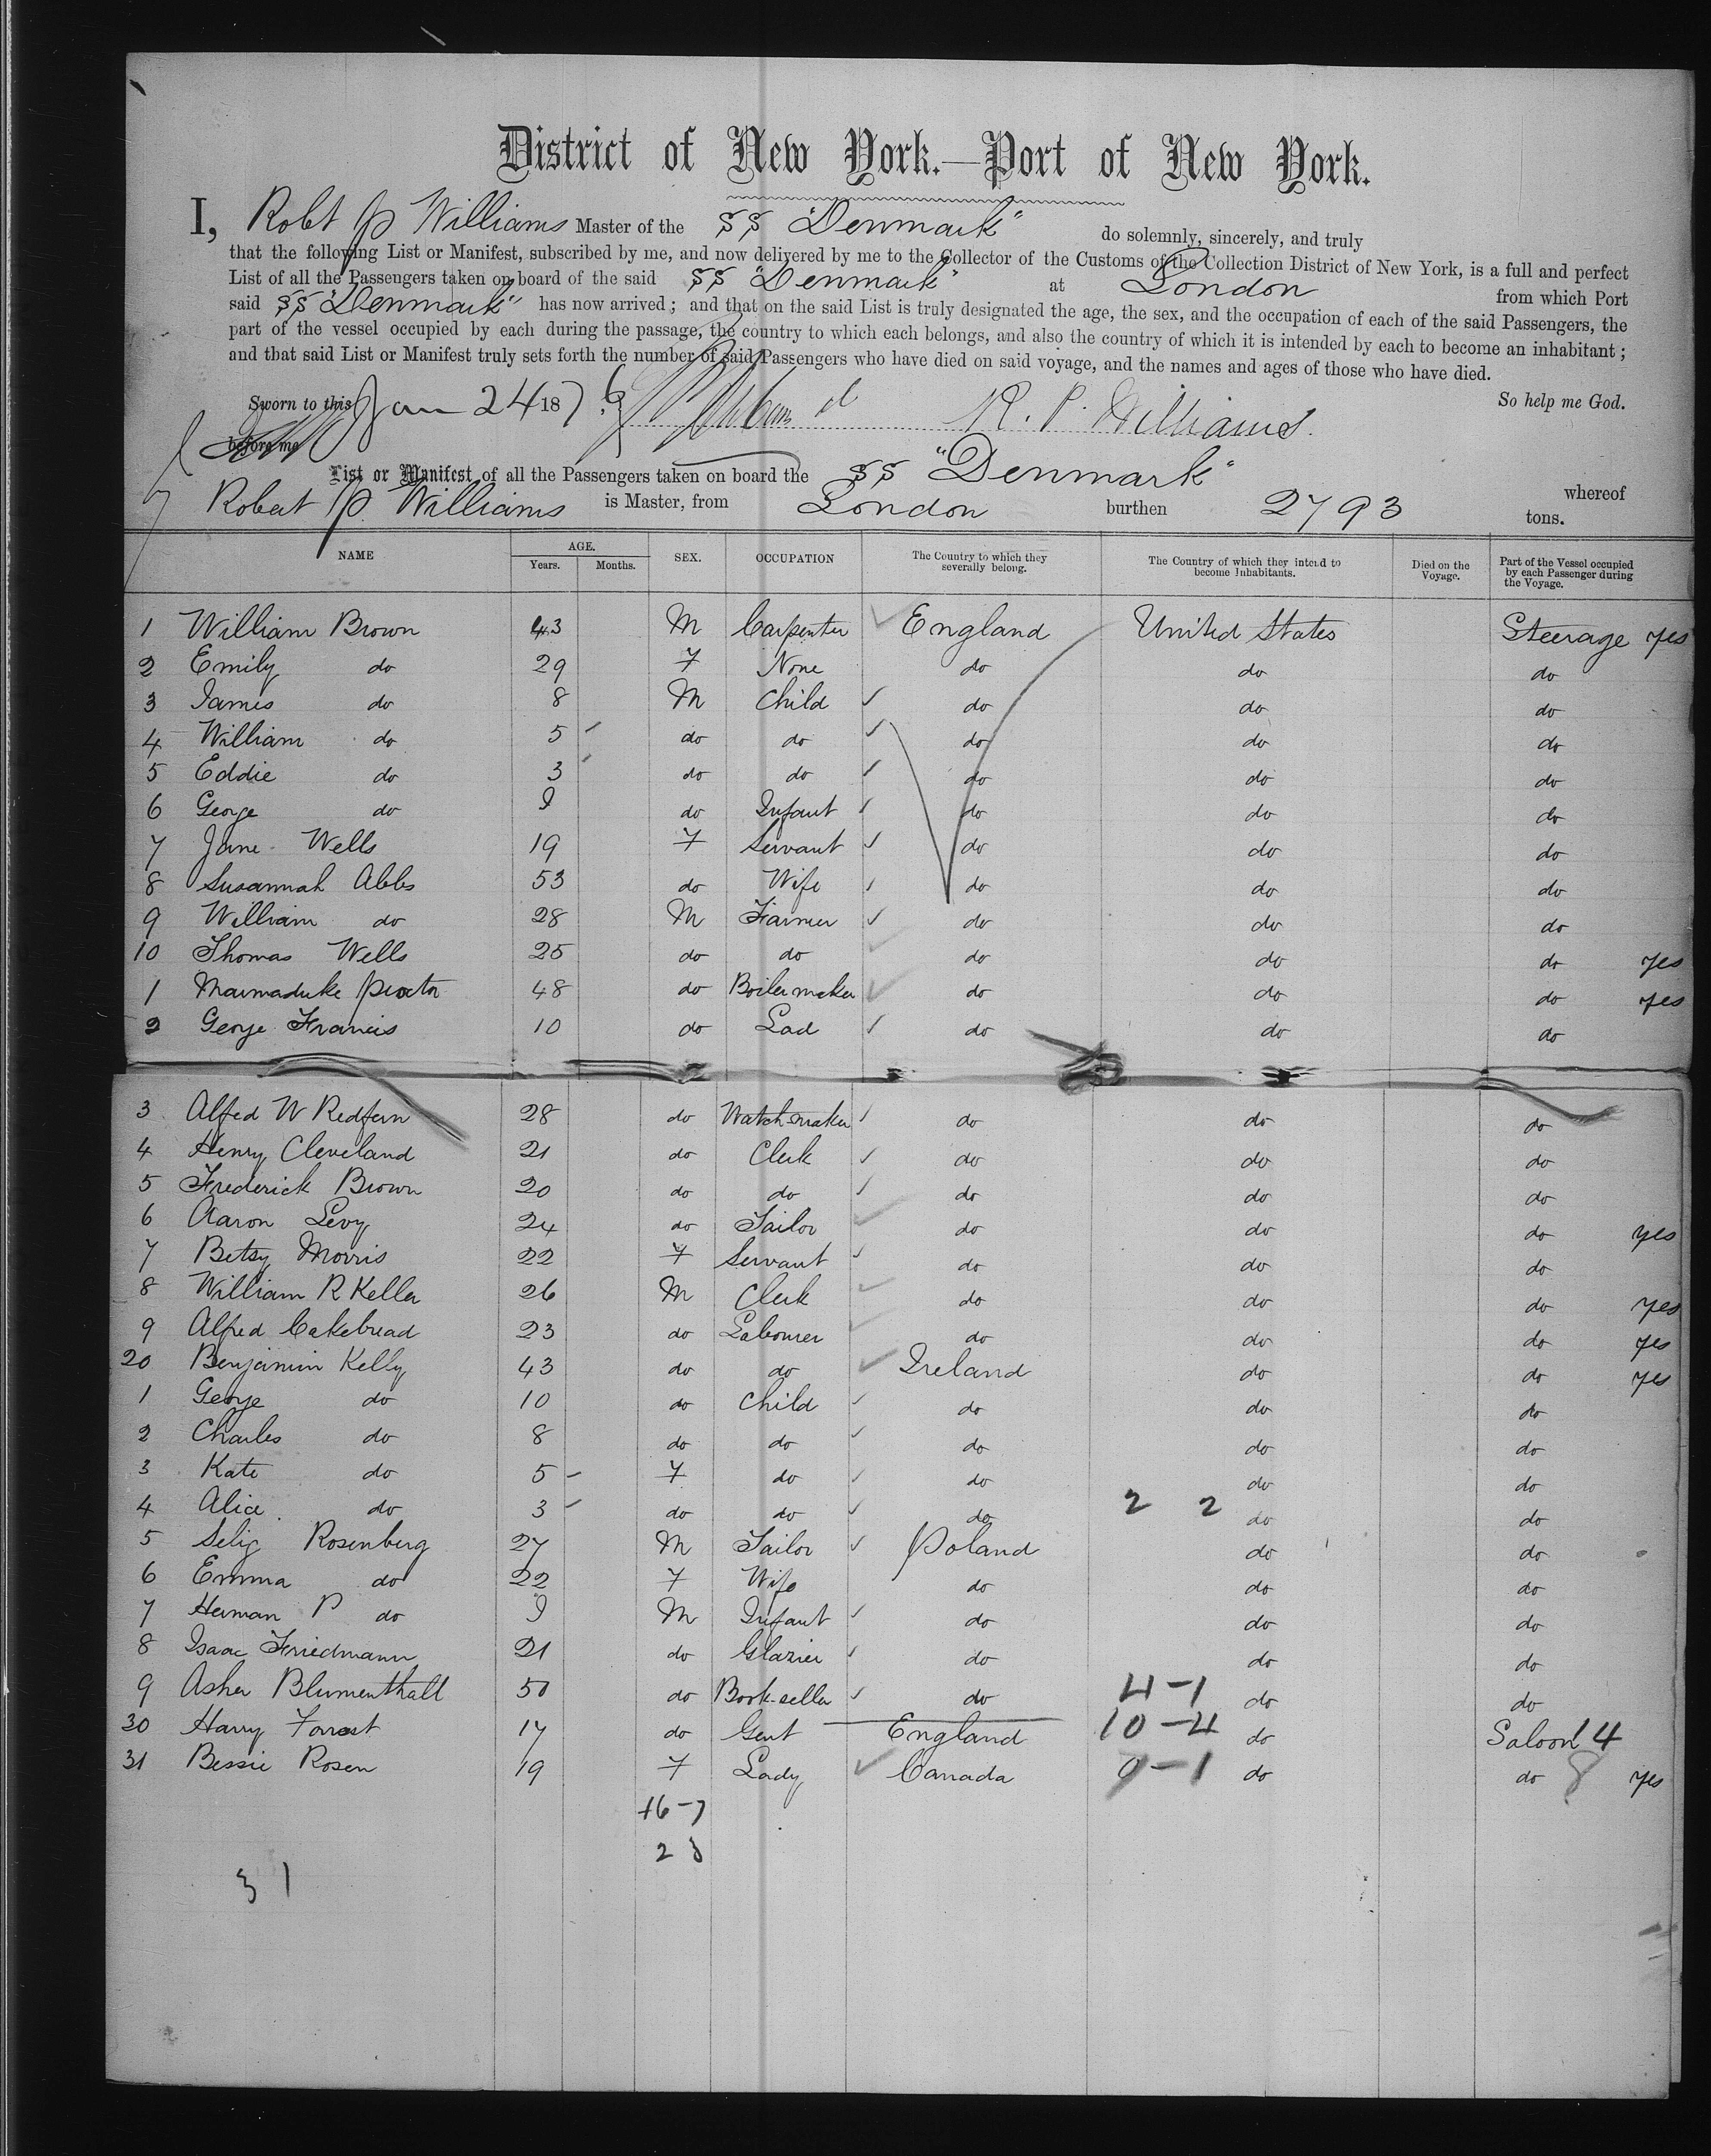 District of New York.—Port of New York.
I, Robt P Williams Master of the SS "Denmark" do solemnly, sincerely, and truly
that the following List or Manifest, subscribed by me, and now delivered by me to the Collector of the Customs of the Collection District of New York, is a full and perfect
List of all the Passengers taken on board of the said SS "Denmark" at London from which Port
said SS "Denmark" has now arrived; and that on the said List is truly designated the age, the sex, and the occupation of each of the said Passengers, the
part of the vessel occupied by each during the passage, the country to which each belongs, and also the country of which it is intended by each to become an inhabitant;
and that said List or Manifest truly sets forth the number of said Passengers who have died on said voyage, and the names and ages of those who have died.
Sworn to this Jan 24 1876 R. P. Williams So help me God.
before me
List or Manifest of all the Passengers taken on board the SS "Denmark" whereof
Robert P Williams is Master, from London burthen 2793 tons.
NAME AGE. Years. Months. SEX. OCCUPATION The Country to which they severally belong. The Country of which they intend to become Inhabitants. Died on the Voyage. Part of the Vessel occupied by each Passenger during the Voyage.
1 William Brown 43 M Carpenter England United States Steerage yes
2 Emily do 29 F None do do do
3 James do 8 M Child do do do
4 William do 5 do do do do do
5 Eddie do 3 do do do do do
6 George do I do Infant do do do
7 Jane Wells 19 F Servant do do do
8 Susannah Abbs 53 do Wife do do do
9 William do 28 M Farmer do do do
10 Thomas Wells 25 do do do do do yes
1 Marmaduke Proctor 48 do Boilermaker do do do yes
2 George Francis 10 do Lad do do do
3 Alfred W Redfern 28 do Watchmaker do do do
4 Henry Cleveland 21 do Clerk do do do
5 Frederick Brown 20 do do do do do
6 Aaron Levy 24 do Tailor do do do yes
7 Betsy Morris 22 F Servant do do do
8 William R Keller 26 M Clerk do do do yes
9 Alfred Cakebread 23 do Labourer do do do yes
20 Benjamin Kelly 43 do do Ireland do do yes
1 George do 10 do Child do do do
2 Charles do 8 do do do do do
3 Kate do 5 F do do do do
4 Alice do 3 do do do 2 2 do do
5 Selig Rosenberg 27 M Tailor Poland do do
6 Emma do 22 F Wife do do do
7 Herman P do I M Infant do do do
8 Isaac Friedmann 21 do Glazier do do do
9 Asher Blumenthall 50 do Book-seller do 4-1 do do
30 Harry Forrest 17 do Gent England 10-4 do Saloon 4
31 Bessie Rosen 19 F Lady Canada 0-1 do do 8 yes
16-7
2
31